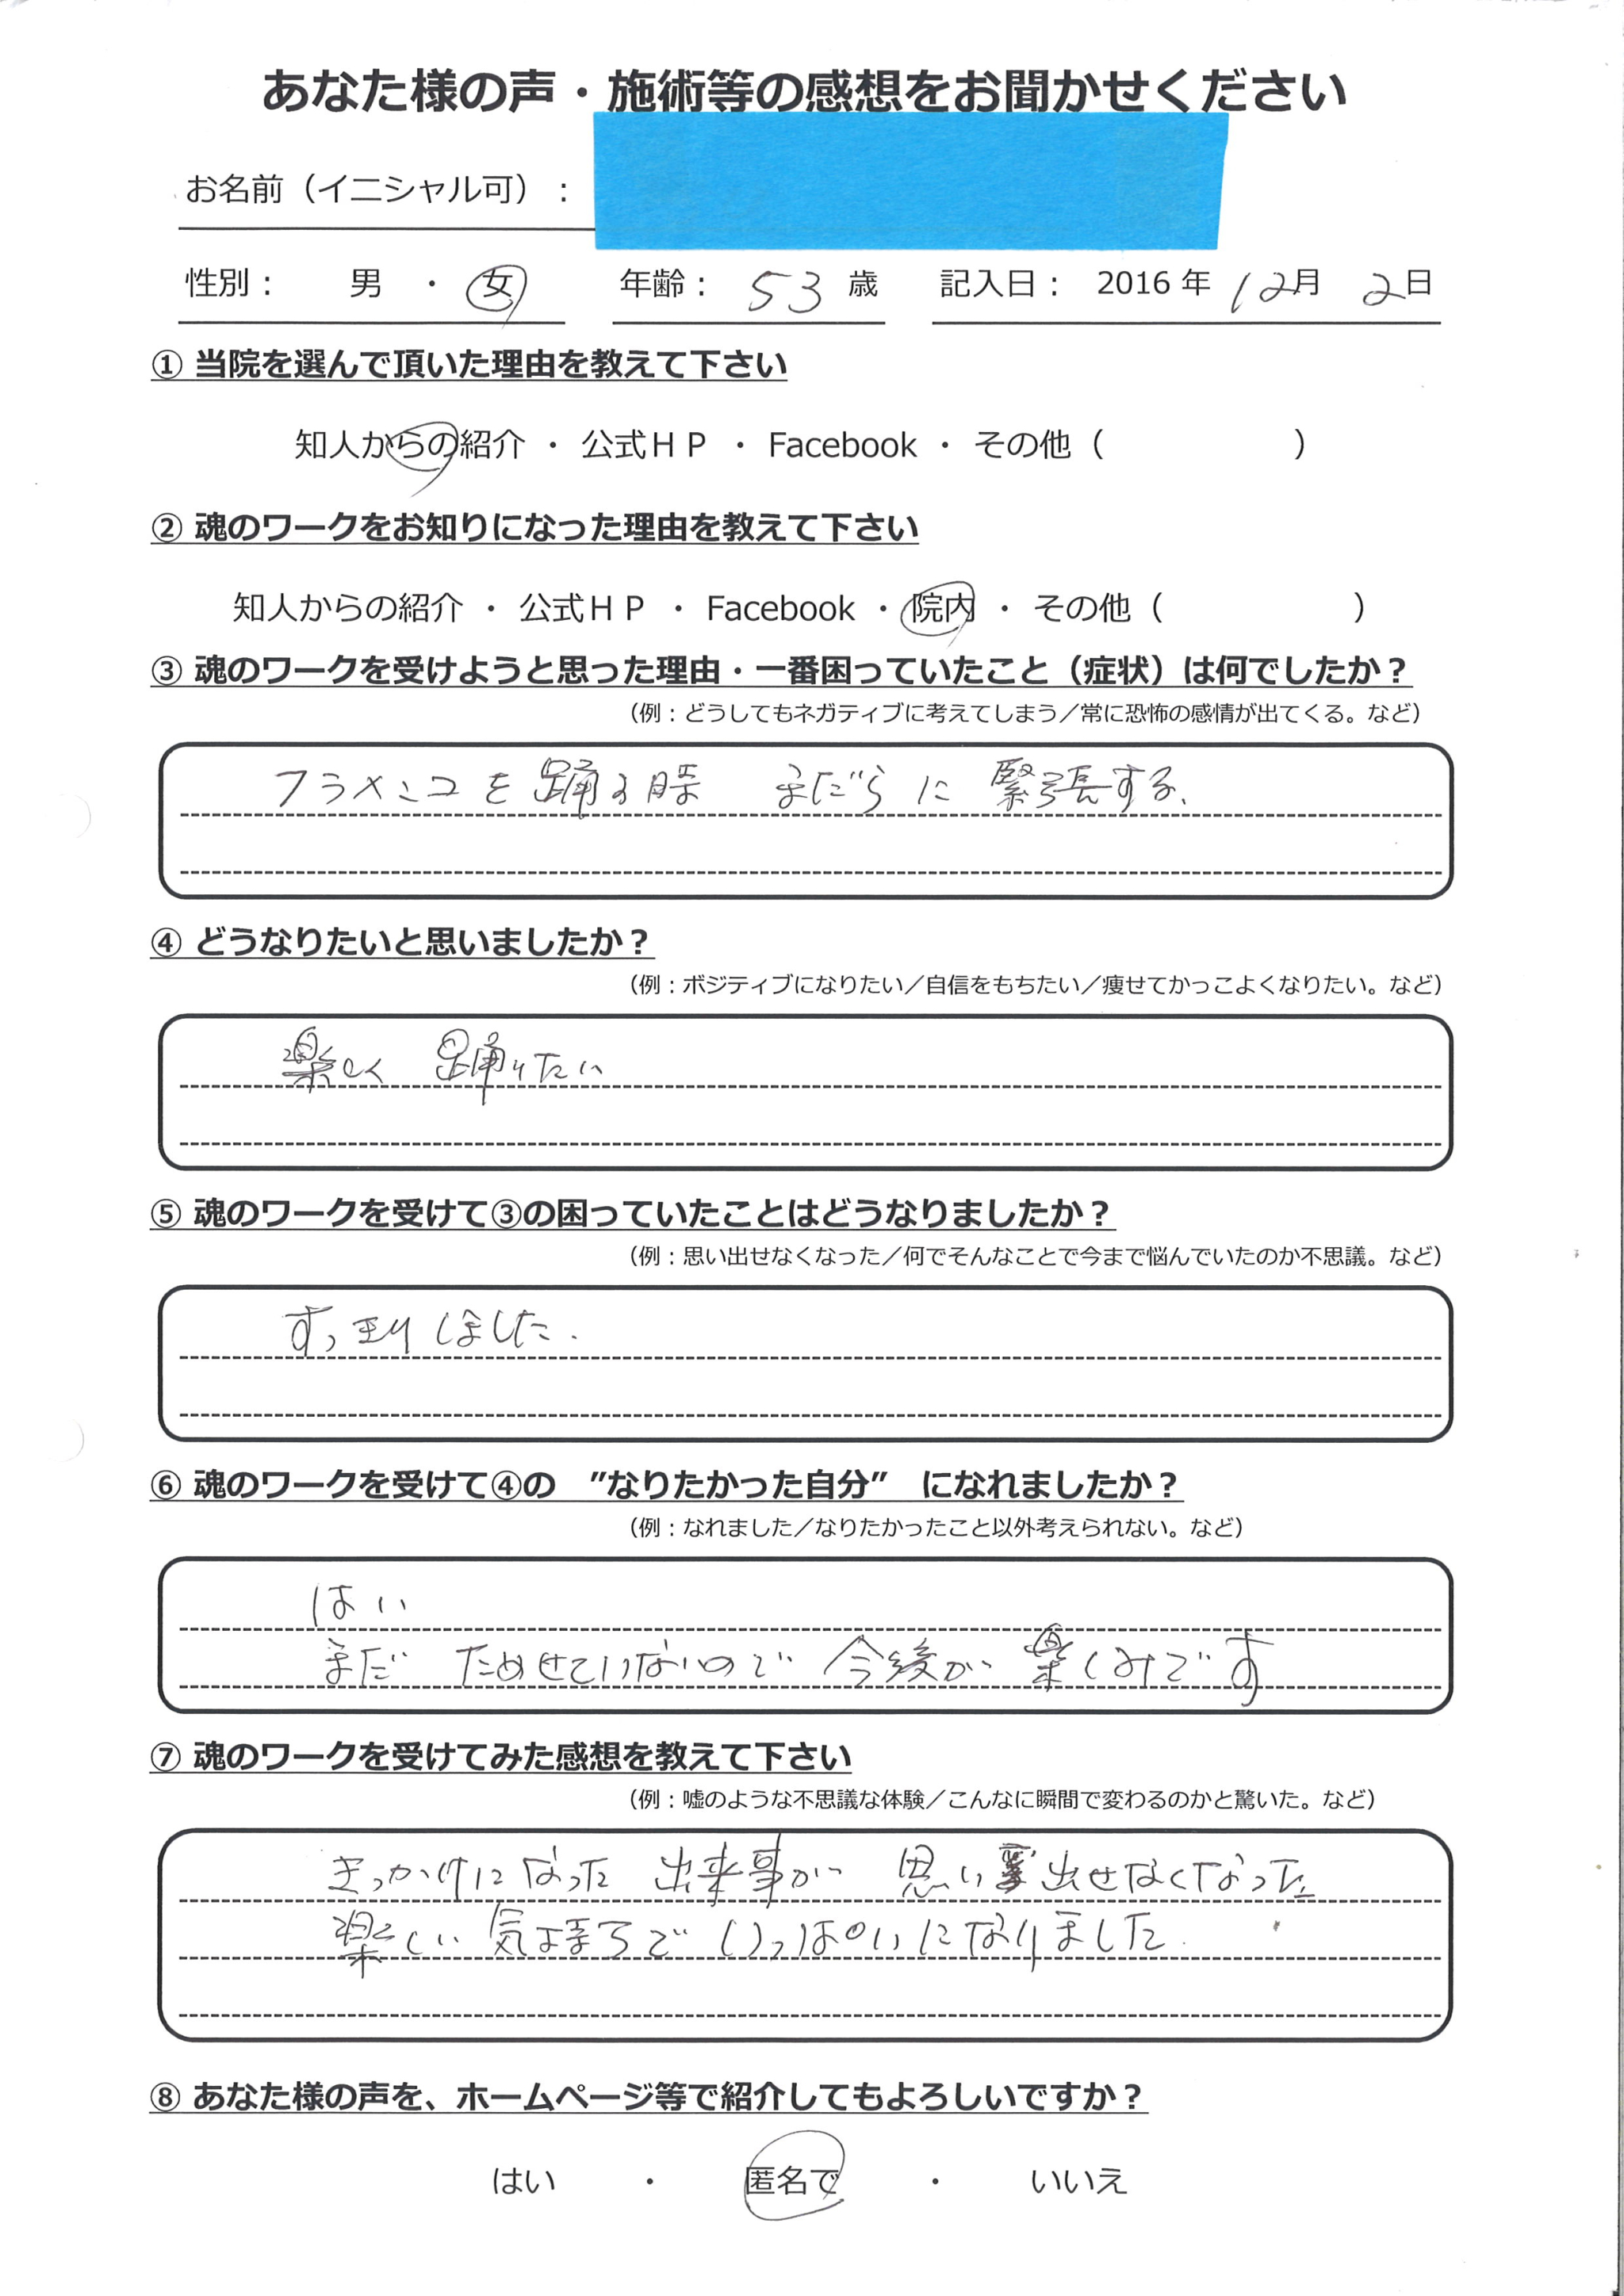 あなた様の声・施術等の感想をお聞かせください
お名前（イニシャル可）：
性別： 男 ・ 女 年齢： 53 歳 記入日： 2016 年 12月 2日
① 当院を選んで頂いた理由を教えて下さい
知人からの紹介 ・ 公式ＨＰ ・ Facebook ・ その他（ ）
② 魂のワークをお知りになった理由を教えて下さい
知人からの紹介 ・ 公式ＨＰ ・ Facebook ・ 院内 ・ その他（ ）
③ 魂のワークを受けようと思った理由・一番困っていたこと（症状）は何でしたか？
（例：どうしてもネガティブに考えてしまう／常に恐怖の感情が出てくる。など）
フラメンコを踊る時 まだらに 緊張する。
④ どうなりたいと思いましたか？
（例：ポジティブになりたい／自信をもちたい／痩せてかっこよくなりたい。など）
楽しく 踊りたい
⑤ 魂のワークを受けて③の困っていたことはどうなりましたか？
（例：思い出せなくなった／何でそんなことで今まで悩んでいたのか不思議。など）
すっきりしました.
⑥ 魂のワークを受けて④の ”なりたかった自分” になれましたか？
（例：なれました／なりたかったこと以外考えられない。など）
はい
まだ ためせていないので 今後が 楽しみです
⑦ 魂のワークを受けてみた感想を教えて下さい
（例：嘘のような不思議な体験／こんなに瞬間で変わるのかと驚いた。など）
きっかけになった 出来事が 思い出せなくなった
楽しい 気持ちで いっぱいになりました.
⑧ あなた様の声を、ホームページ等で紹介してもよろしいですか？
はい ・ 匿名で ・ いいえ